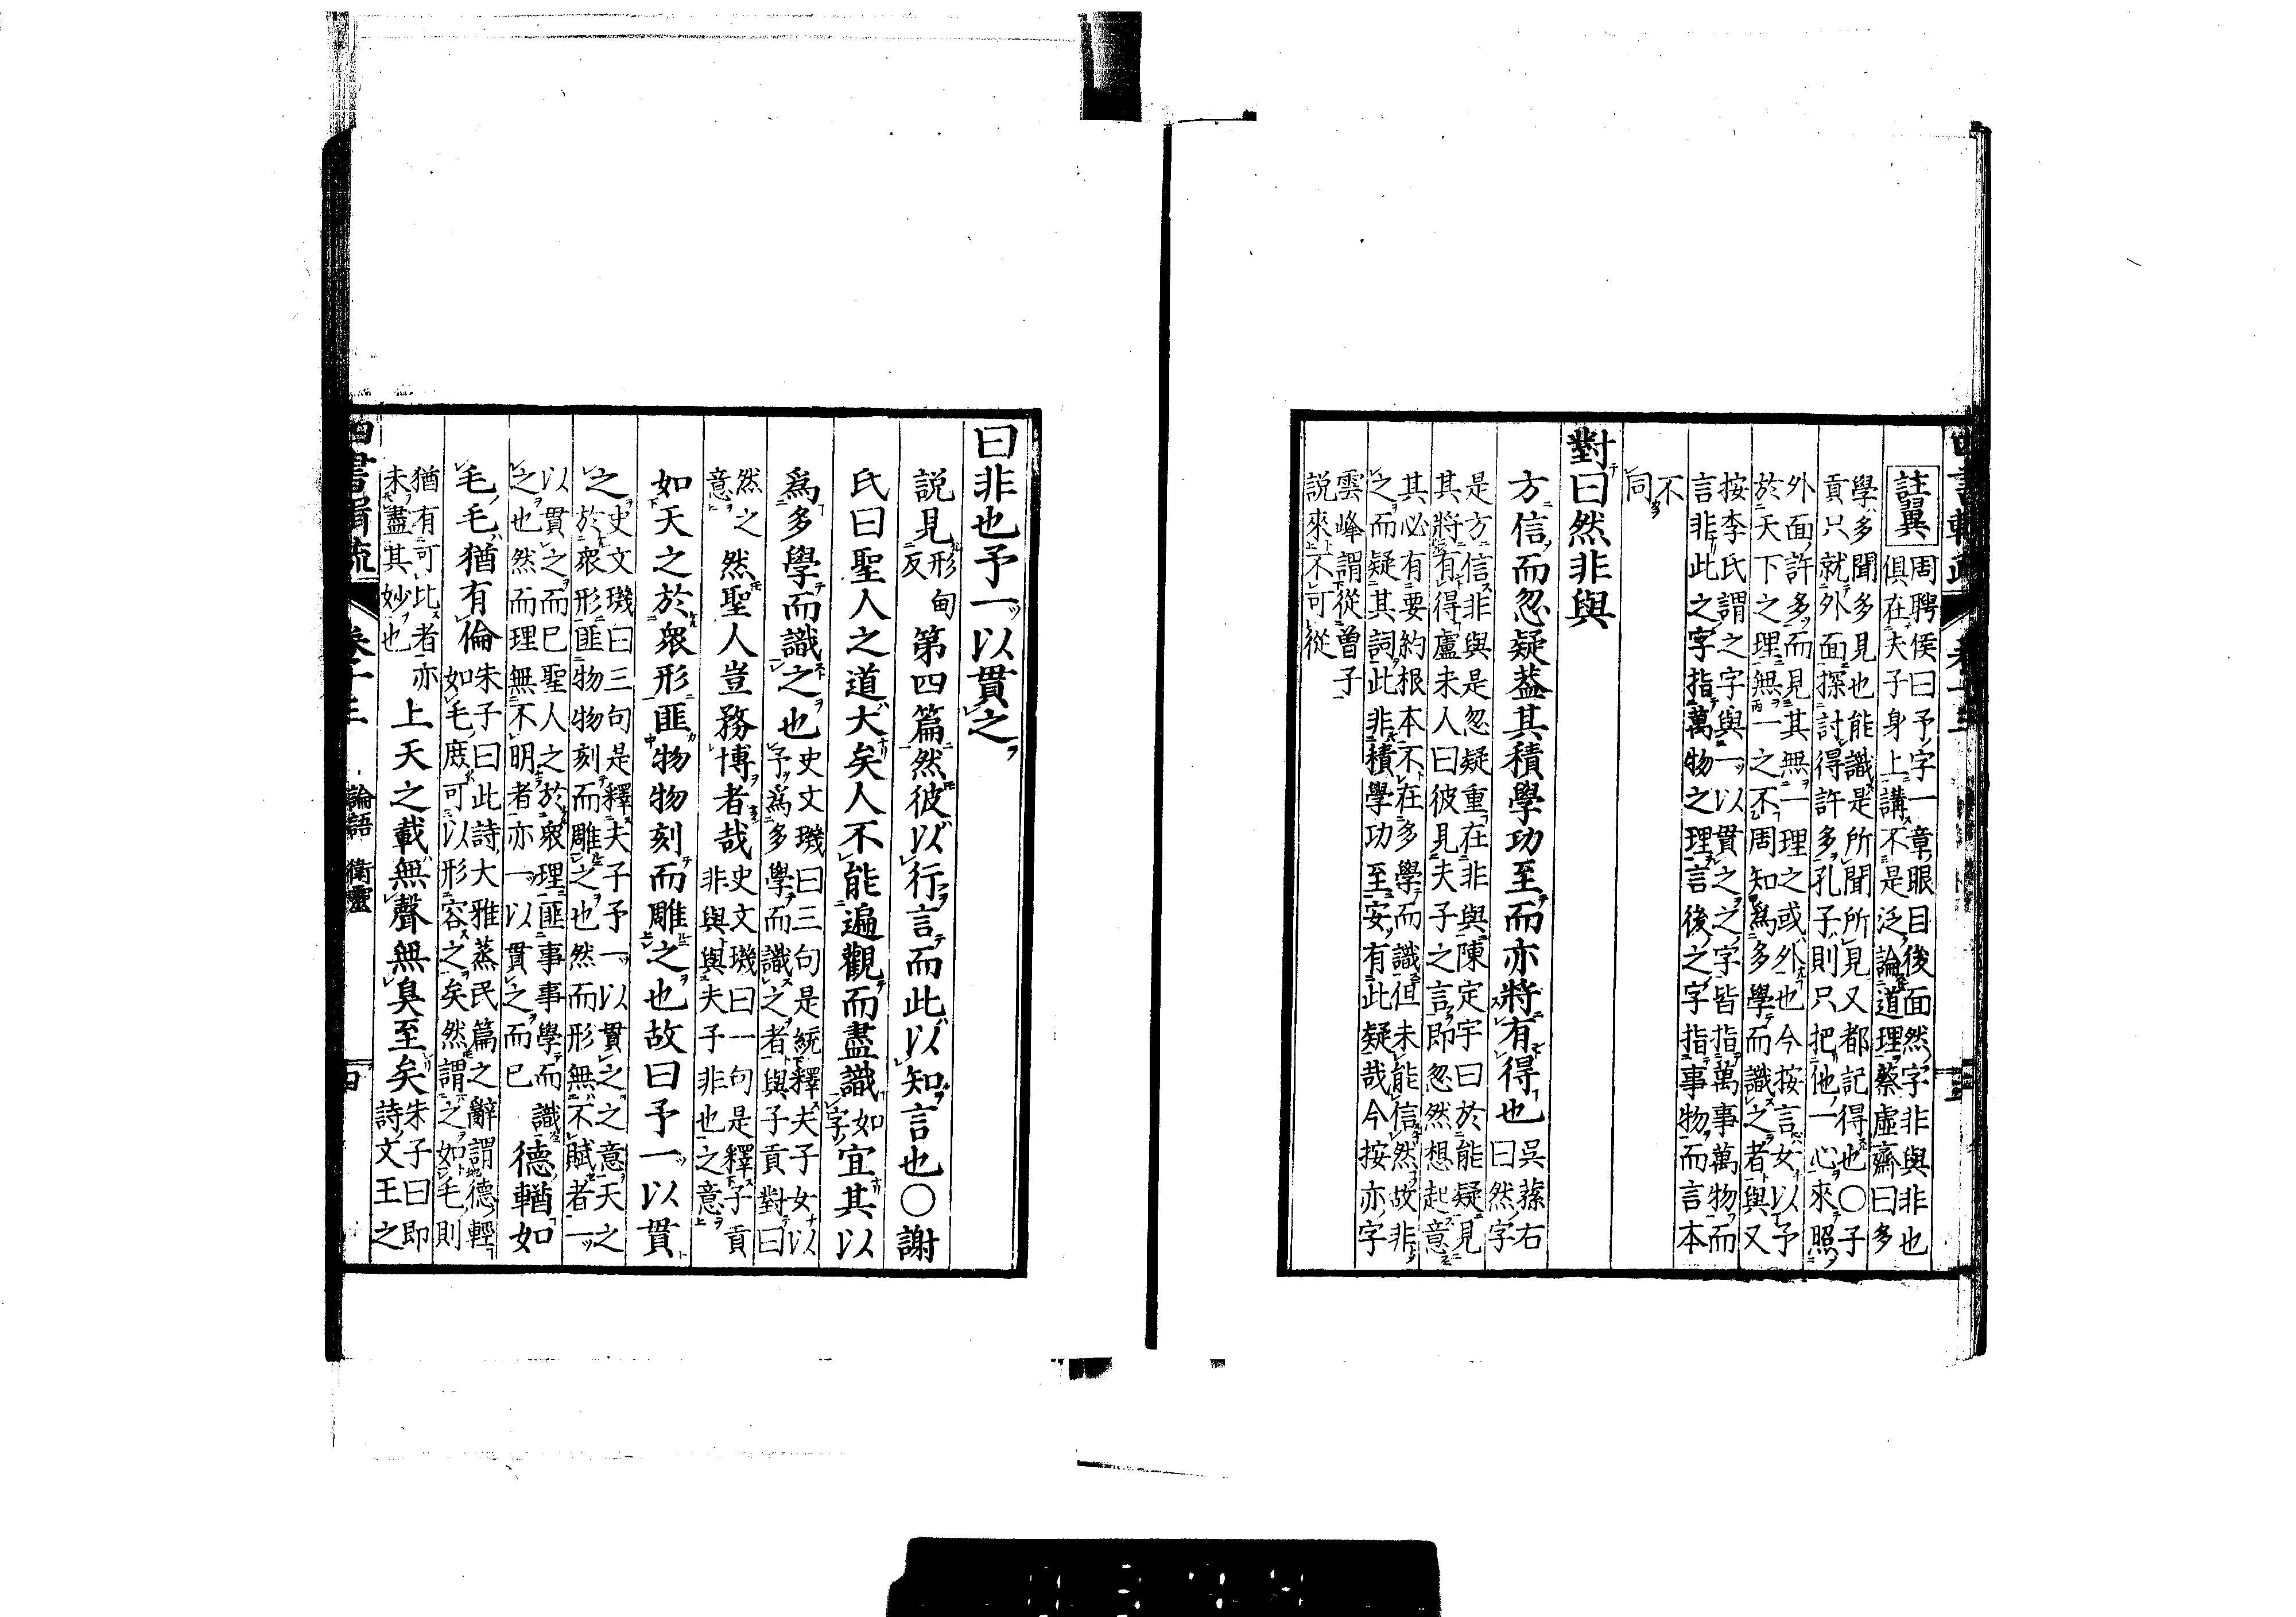 註翼
周聘侯曰予字一章眼目後面然字非與非也
俱在夫子身上講不是泛論道理蔡虛齋曰多
學多聞多見也能識是所聞所見又都記得也〇子
貢只就外面探討得許多孔子則只把他一心來照
外面許多而見其無一理之或外也今按言女以予
於天下之理無一之不周知爲多學而識之者與又
按李氏謂之字與一以貫之之字皆指萬事萬物而
言非此之字指萬物之理言後之字指事物而言本
不
同
對曰然非與
方信而忽疑葢其積學功至而亦將有得也
吳蓀右
曰然字
是方信非與是忽疑重在非與陳定宇曰於能疑見
其將有得盧未人曰彼見夫子之言即忽然想起意
其必有要約根本不在多學而識但未能信然故非
之而疑其詞此非積學功至安有此疑哉今按亦字
雲峰謂從曾子
説來不可從
曰非也予一以貫之
説見形甸反第四篇然彼以行言而此以知言也〇謝
氏曰聖人之道大矣人不能遍觀而盡識如字宜其以
爲多學而識之也
史文璣曰三句是統釋夫子女以
予爲多學而識之者與子貢對曰
然之
意
然聖人豈務博者哉
史文璣曰一句是釋子貢
非與與夫子非也之意
如天之於衆形匪物物刻而雕之也故曰予一以貫
之
史文璣曰三句是釋夫子予一以貫之之意天之
於衆形匪物物刻而雕之也然而形無不賦者一
以貫之而已聖人之於衆理匪事事學而識
之也然而理無不明者亦一以貫之而已
德輶如
毛毛猶有倫
朱子曰此詩大雅蒸民篇之辭謂德輕
如毛庶可以形容之矣然謂之如毛則
猶有可比者亦
未盡其妙也
上天之載無聲無臭至矣
朱子曰即
詩文王之
論語 衛靈